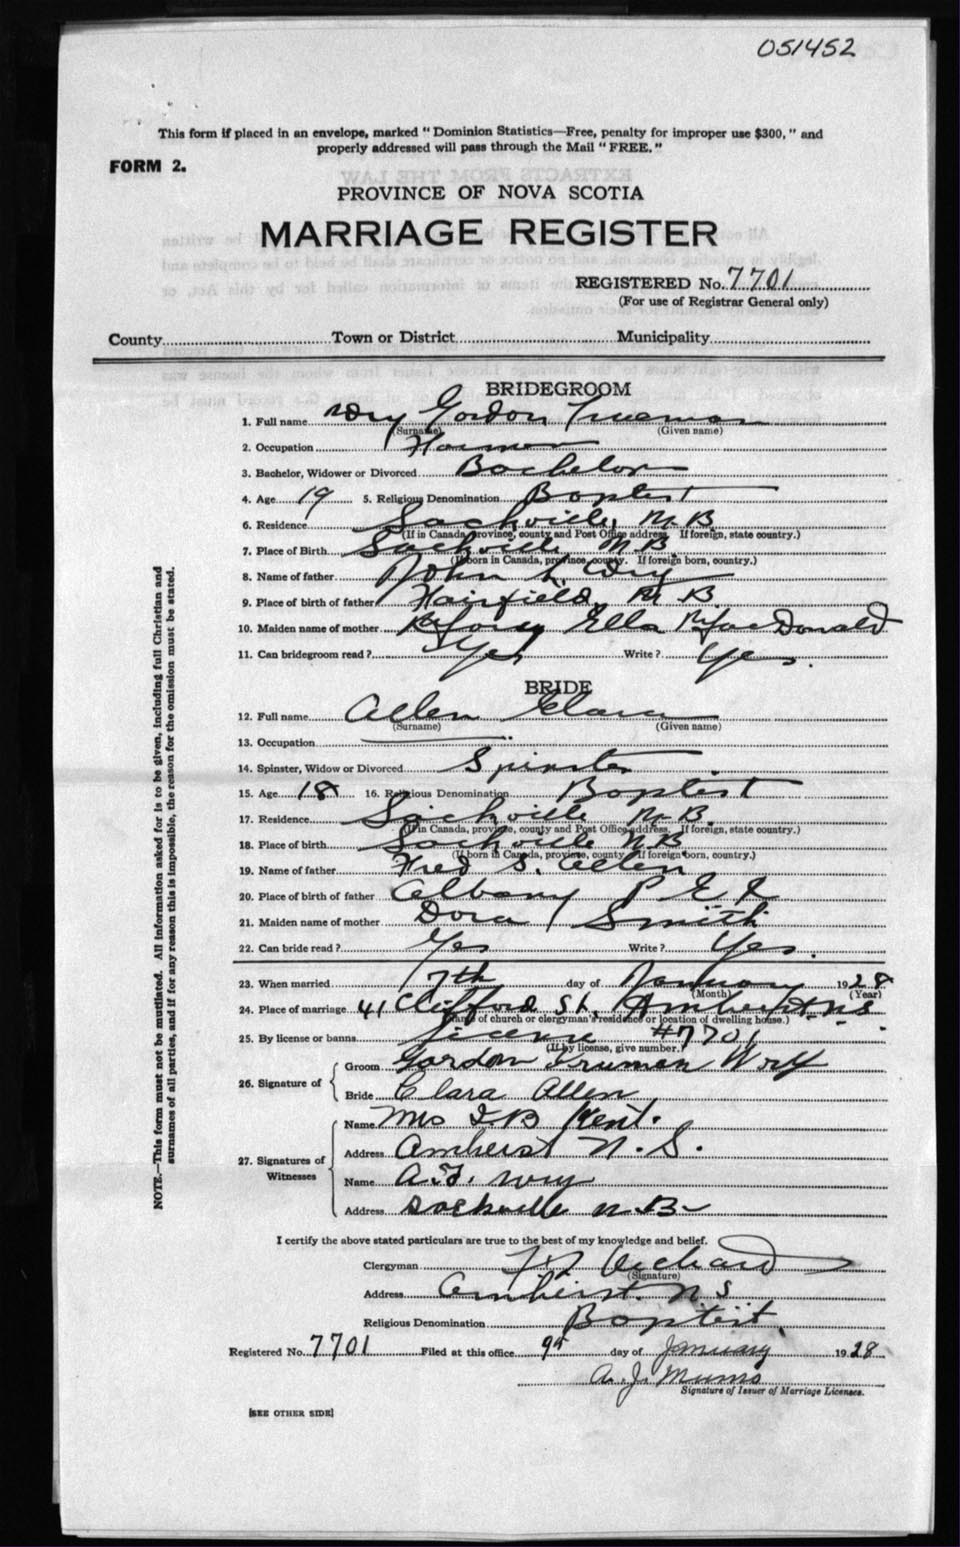 051452
This form if placed in an envelope, marked "Dominion Statistics—Free, penalty for improper use $300," and
properly addressed will pass through the Mail "FREE."
FORM 2.
EXTRACTS FROM THE LAW
PROVINCE OF NOVA SCOTIA
MARRIAGE REGISTER
REGISTERED No. 7701
(For use of Registrar General only)
County Town or District Municipality
BRIDEGROOM
1. Full name Wry Gordon Trueman
(Surname) (Given name)
2. Occupation
3. Bachelor, Widower or Divorced Bachelor
4. Age 19 5. Religious Denomination Baptist
6. Residence Sackville, N.B.
(If in Canada, province, county and Post Office address. If foreign, state country.)
7. Place of Birth Sackville N.B.
(If born in Canada, province, county. If foreign born, country.)
8. Name of father John Wry
9. Place of birth of father Fairfield N B
10. Maiden name of mother Ella MacDonald
11. Can bridegroom read? Yes Write? Yes.
BRIDE
12. Full name Allen Clara
(Surname) (Given name)
13. Occupation
14. Spinster, Widow or Divorced Spinster
15. Age 18 16. Religious Denomination Baptist
17. Residence Sackville N.B.
(If in Canada, province, county and Post Office address. If foreign, state country.)
18. Place of birth Sackville N.B
(If born in Canada, province, county. If foreign born, country.)
19. Name of father Fred S. Allen
20. Place of birth of father Albany P E I
21. Maiden name of mother Dora Smith
22. Can bride read? Yes Write? Yes.
23. When married 7th day of January 1928
(Month) (Year)
24. Place of marriage 41 Clifford St., Amherst N.S.
(Name of church or clergyman's residence or location of dwelling house.)
25. By license or banns License #7701
(If by license, give number.)
26. Signature of Groom Gordon Truman Wry
Bride Clara Allen
27. Signatures of Witnesses
Name Mrs Kent.
Address Amherst N.S.
Name A.F. Wry
Address Sackville N.B.
I certify the above stated particulars are true to the best of my knowledge and belief.
Clergyman
(Signature)
Address Amherst. N S
Religious Denomination Baptist.
Registered No. 7701 Filed at this office 9th day of January 1928
A. J.
Signature of Issuer of Marriage Licenses.
[SEE OTHER SIDE]
NOTE.—This form must not be mutilated. All information asked for is to be given, including full Christian and
surnames of all parties, and if for any reason this is impossible, the reason for the omission must be stated.